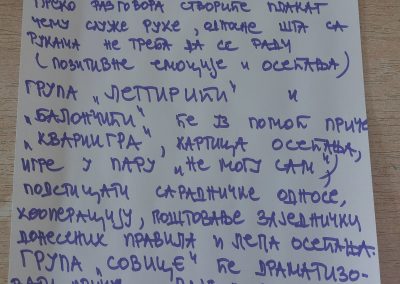 ПРЕКО РАЗГОВОРА СТВОРИТЕ ПЛАКАТ
ЧЕМУ СЛУЖЕ РУКЕ, ОДНОСНО ШТА СА
РУКАМА НЕ ТРЕБА ДА СЕ РАДИ
(ПОЗИТИВНЕ ЕМОЦИЈЕ И ОСЕЋАЊА)
ГРУПА „ЛЕПТИРИЋИ" И
„БАЛОНЧИЋИ" ЋЕ ИЗ ПОМОЋ ПРИЧЕ
„КВАРИИГРА", КАРТИЦА ОСЕЋАЊА,
ИГРЕ У ПАРУ „НЕ МОГУ САМ",
ПОДСТИЦАТИ САРАДНИЧКЕ ОДНОСЕ,
КООПЕРАЦИЈУ, ПОШТОВАЊЕ ЗАЈЕДНИЧКИ
ДОНЕСЕНИХ ПРАВИЛА И ЛЕПА ОСЕЋАЊА.
ГРУПА „СОВИЦЕ" ЋЕ ДРАМАТИЗО-